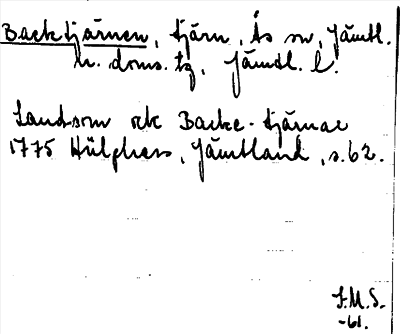 Backtjärnen, tjärn, Ås sn, Jämtl.
n. doms. tg, Jämtl. l.
Landsom och Backe-tjärnar
1775 Hülphers, Jämtland, s. 62.
J.M.S.
-61.